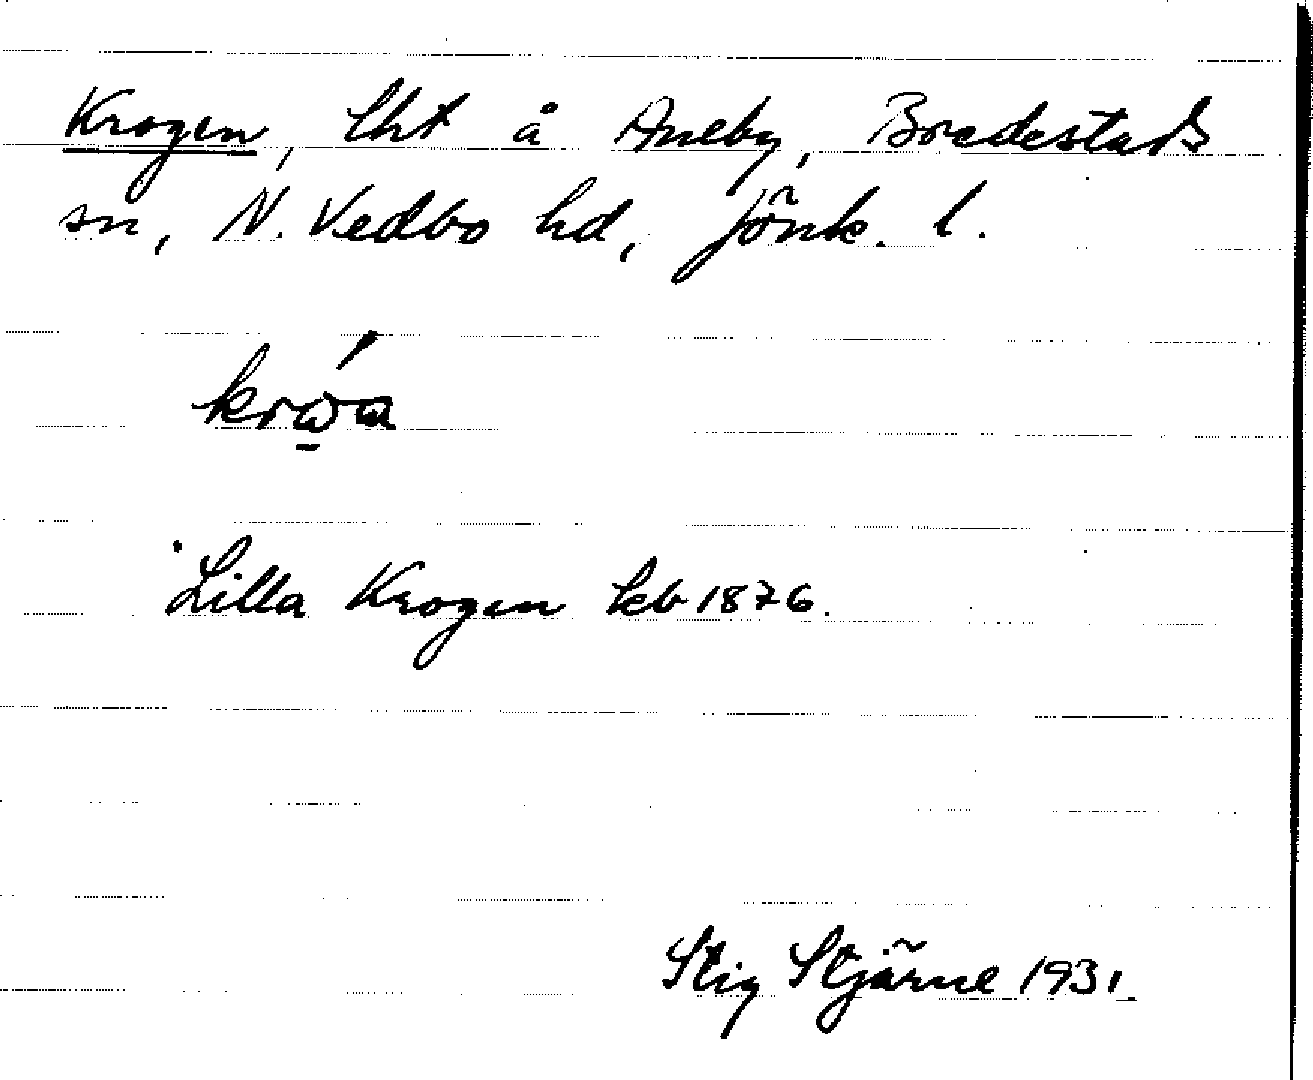 Krogen, lht å Aneby, Bredestads
sn, N. Vedbo hd, Jönk. l.
Lilla Krogen kb 1876.
Stig Stjärne 1931.